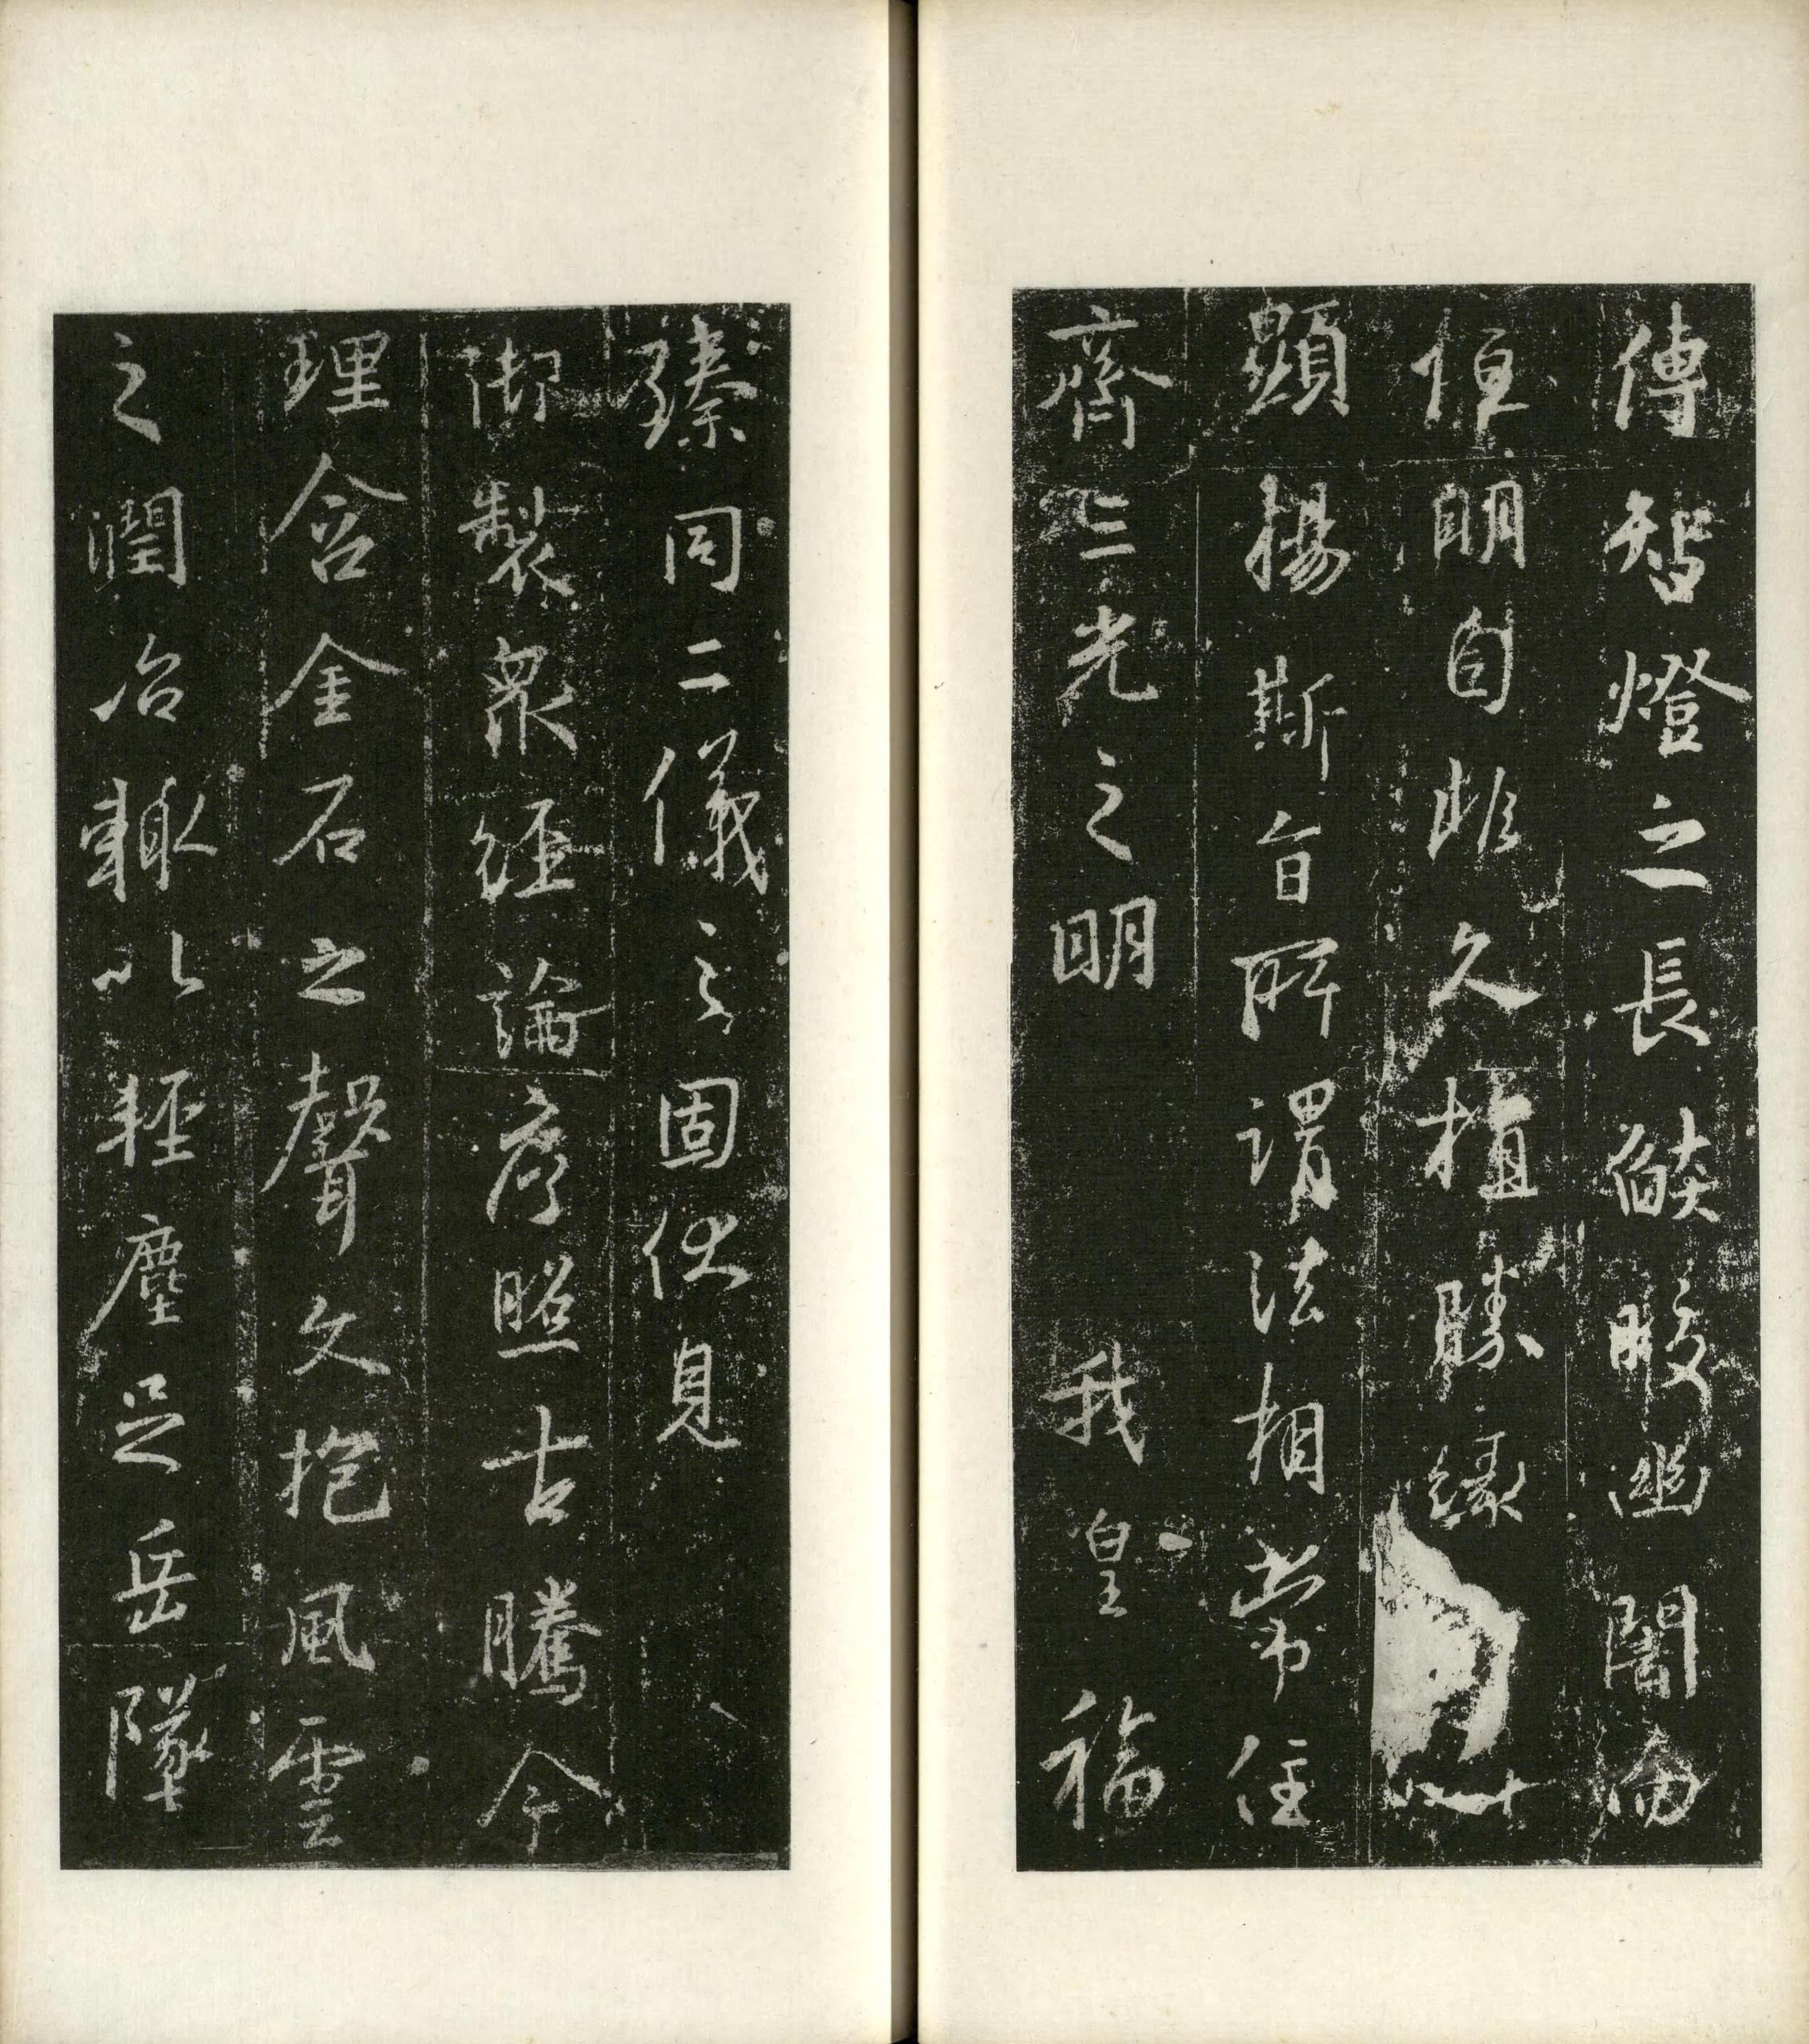 傳智燈之長焰皎幽闇而
恒明自非久植勝緣以
顯揚斯旨所謂法相常住
齊三光之明 我皇福
臻同二儀之固伏見
御製眾經論序照古騰今
理含金石之聲文抱風雲
之潤治輒以輕塵足岳墜